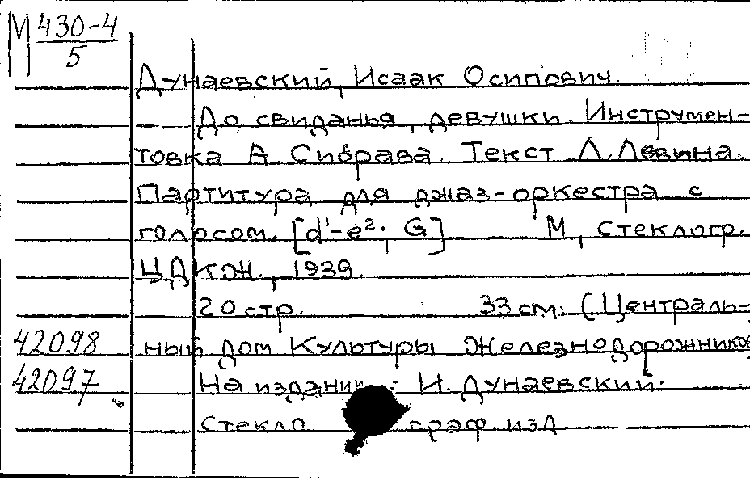 М 430-4
5
Дунаевский, Исаак Осипович.
До свиданья, девушки. Инструмен-
товка А. Сиврава. Текст Л. Левина.
Партитура для джаз-оркестра с
голосом. [d¹-e²; G] М., стеклогр.
ЦДКЖ., 1939.
20 стр. 33 см. (Централь-
42098 ный дом Культуры Железнодорожников
42097 На издании: И. Дунаевский.
Стекло граф изд